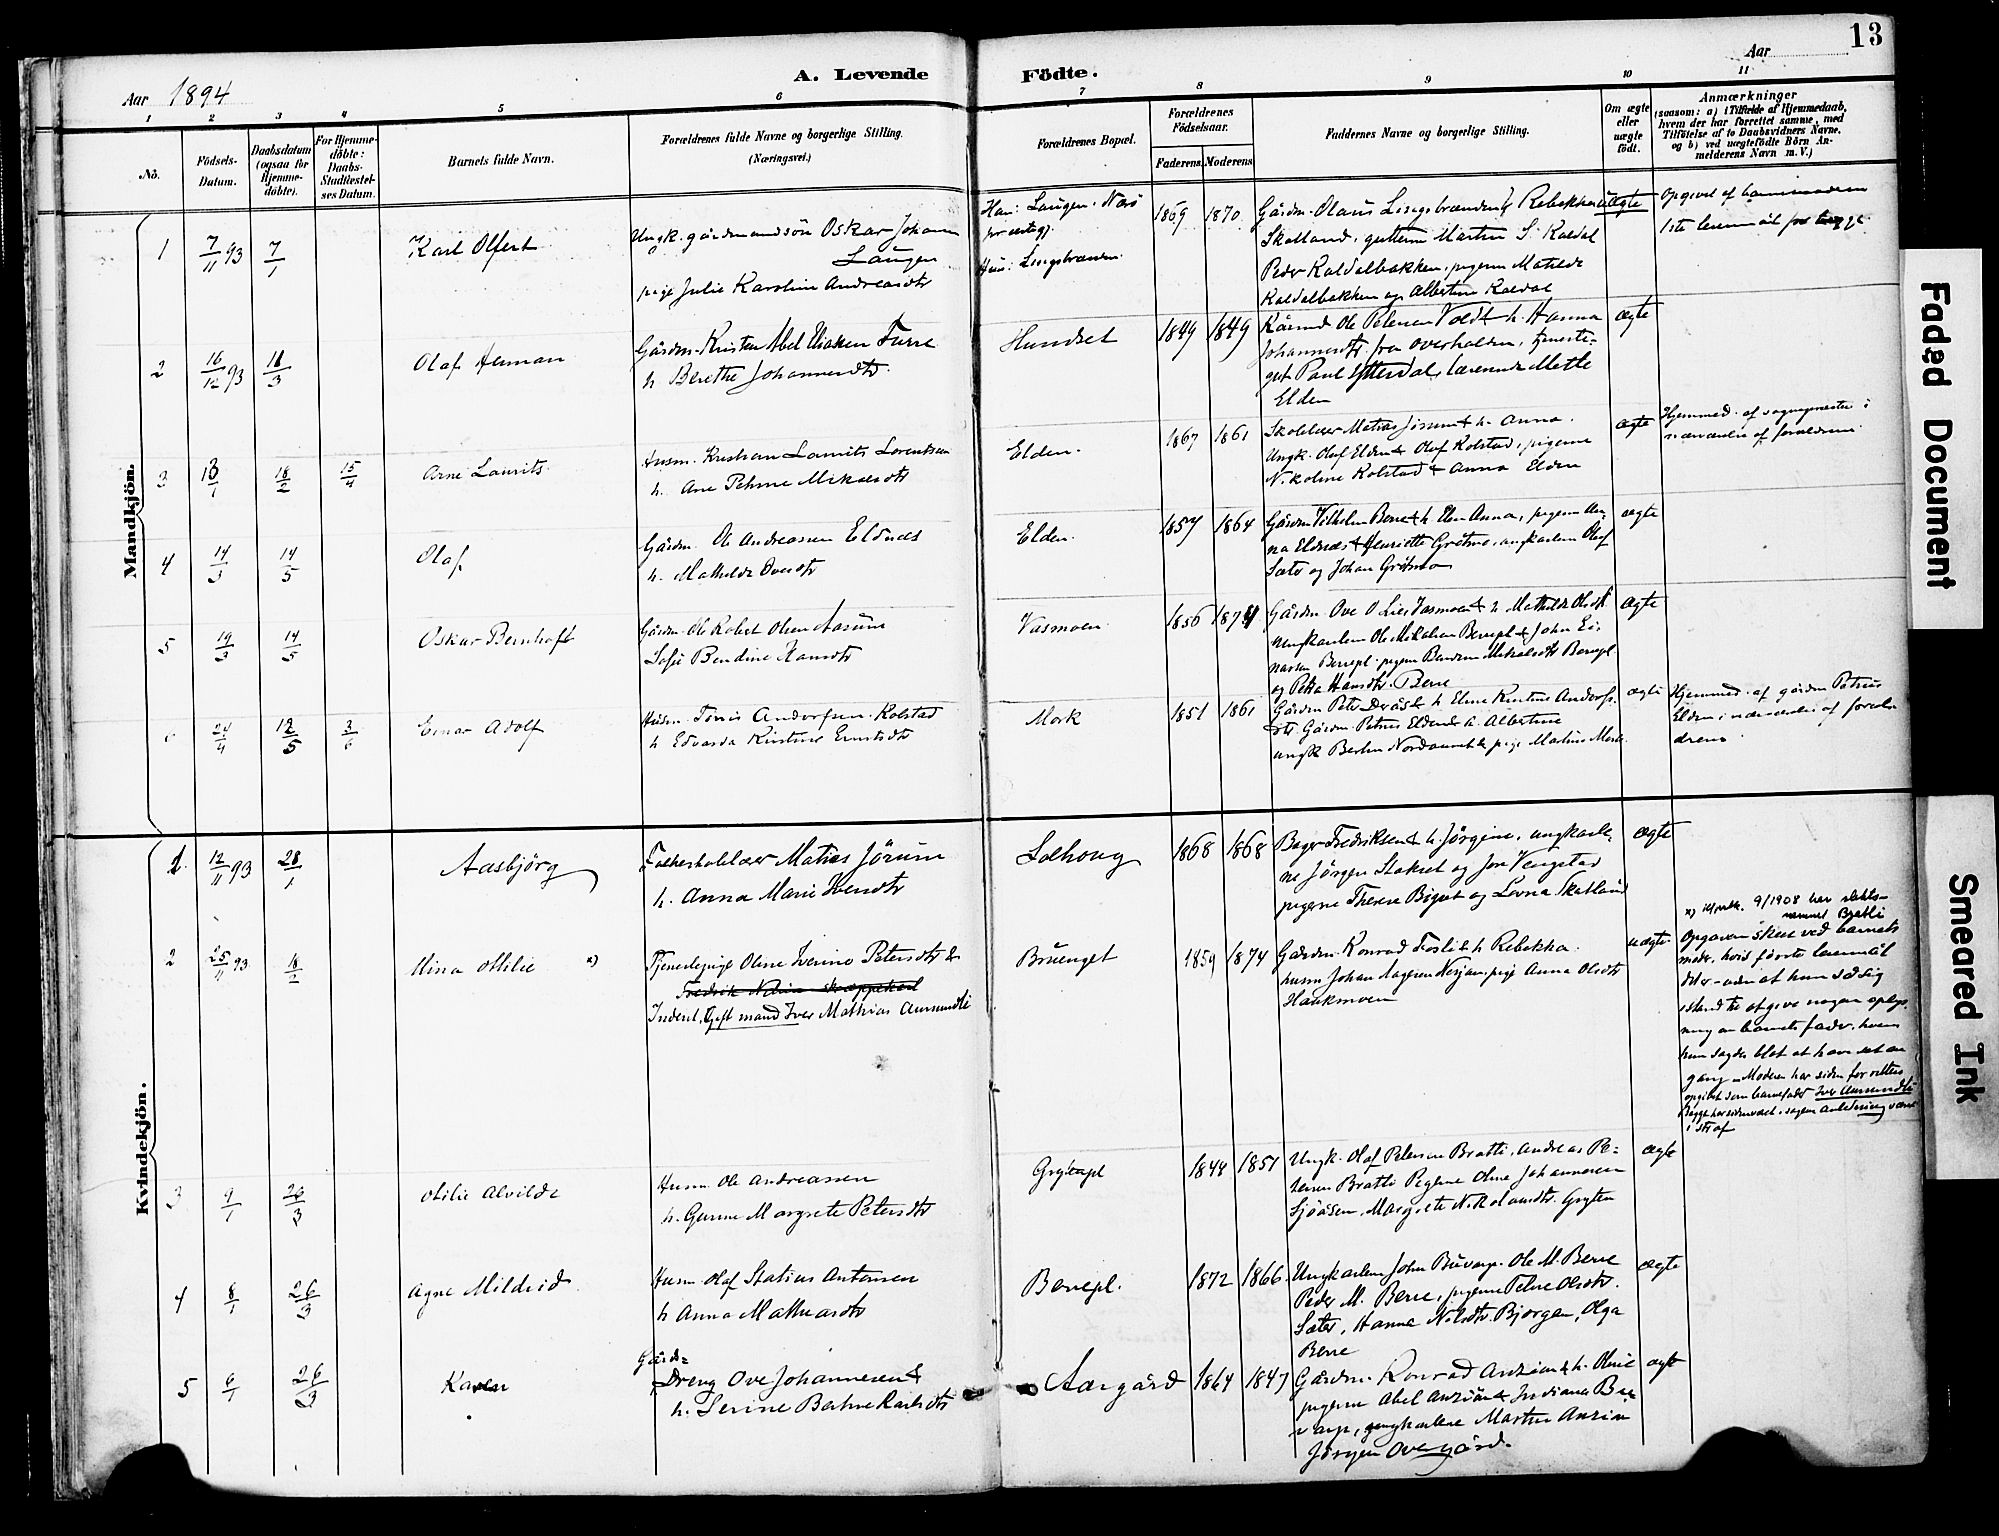 13
Aar 1894
A. Levende Födte.
Aar
1 2 3 4 5 6 7 8 9 10 11
No.
Födsels-
Datum.
Daabsdatum
(ogsaa för
Hjemme-
döbte).
For Hjemme-
döbte:
Daabs-
Stadfæstel-
ses Datum.
Barnets fulde Navn.
Forældrenes fulde Navne og borgerlige Stilling.
(Næringsvei.)
Forældrenes Bopæl.
Forældrenes
Födselsaar.
Faderens. Moderens.
Faddernes Navne og borgerlige Stilling.
Om ægte
eller
uægte
födt.
Anmærkninger
(saasom: a) i Tilfælde af Hjemmedaab,
hvem der har forrettet samme, med
Tilföielse af to Daabsvidners Navne,
og b) ved uægtefödte Börn An-
melderens Navn m. V.)
Mandkjön.
1 7/11 93 7/1 Karl Olfert
Ungk. gårdmandsön Oskar Johan
Laugen
pige Julie Karoline Andreasdtr
Han: Laugen
Hun: Lingsbranden
1869 1870
Gårdm. Olaus Lingsbranden & Rebekka
Skatland, guttene Martin S. Kaldal
Peder Kaldalbakken, pigerne Matilde
Kaldalbakken og Albertine Kaldal
uægte
Opgivet af barnemoderen
1ste leiermål for begge
2 16/12 93 18/3 Olaf Herman
Gårdm. Kristen Abel Furre
h. Berethe Johannesdtr.
Hundset 1849 1849
Kårmd Ole Petersen Voldt h. Hanna
Johannesdtr. fra Overhalden, tjeneste-
gut Paul Ytterdal, Mette
Elden
ægte
3 13/1 18/2 15/4 Arne Laurits
Husm. Kristian Laurits Lorentsen
h. Ane Petrine Mikalsdtr
Elden. 1867 1861
Skolelærer Matias Jörum & h. Anna.
Ungk. Oluf Elden & Oluf Kolstad, pigerne
Nikoline Kolstad & Anna Elden
ægte
Hjemmed. af sognepresten i
nærværelse af forældrene
4 14/3 14/5 Olaf
Gårdm. Ole Andreassen Eldnes
h. Mathilde Ovesdtr
Elden. 1857 1864
Gårdm Vilhelm Berre & h. Elen Anna, pigerne An-
na Eldnæs & Henriette Grötmo, ungkarlene Oluf
Sæter og Johan Grötmo
ægte
5 19/3 14/5 Oskar Bernhoft
Gårdm. Ole Robert Olsen Aasum
Sofie Bendine Hansdtr
Vasmoen 1856 1871
Gårdm. Ove O Lies Vasmoen & h. Mathilde Olsdt
ungkarlene Ole Mikalsen Berrepl & John Ei-
narsen Berrepl. pigerne Bendine Mikalsdtr Berrepl
og Petra Hansdtr. Berre
ægte
24/4 12/5 3/6 Einar Adolf
Husm. Tönis Andorfsen Kolstad
h. Edvarda Kristine Ernstdtr
Mork 1851 1861
Gårdm Peter Dvås & h. Eline Kristine Andorfs-
dtr. Gårdm. Petrus Elden & h. Albertine
ungk Berten Nordaunet & pige Matine Mork
ægte
Hjemmed. af gårdm Petrus
Elden i nærværelse af foræl-
drene.
Kvindekjön.
1. 12/11 93 28/1 Aasbjörg
Folkeskolelærer Matias Jörum
h. Anna Marie Iversdtr
Solhoug 1868 1868
Bager Fredriksen & h. Jörgine, ungkarle-
ne Jörgen Stokset og Jon Vengstad
pigerne Therese Bigset og Lovna Skatland
ægte
2 25/11 93 18/2 Mina Othilie x)
Tjenestepige Oline Iverine Petersdtr &
Inderst, Gift mand Iver Mathias Aurmundli
Bruenget 1859 1874
Gårdm. Konrad Fosli & h. Rebekka.
husm Johan Aagesen Nesjan, pige Anna Olsdtr
Haukmoen
uægte
x) 9/1908 har slekts-
navnet Bratli
Opgaven skeet ved barnets
moder, hvis förste leiermål
dette - uden at hun så sig
istand til at give nogen oplys-
ning om barnets fader, hvem
hun sagde blot at have set en
gang - Moderen har siden for retten
opgivet som barnefader Iver Aurmundli
i straf
3 9/1 26/3 Otilie Alvilde
Husm. Ole Andreassen
h. Gurine Margrete Petersdtr
Grytepl 1848 1851
Ungk. Olaf Petersen Bratli, Andreas Pe-
tersen Bratli Pigerne Oline Johannesen
Sjöåsen, Margrete Nikolausdtr. Gryten
ægte
4 8/1 26/3 Agne Mildrid
Husm Olaf Statius Antonsen
h Anna Mathiasdtr
Berrepl. 1872 1866
Ungkarlene John Buvarp. Ole M. Berre
Peder M. Berre, pigerne Petrine Olsdtr.
Sæter, Hanna Nilsdtr. Bjorgan, Olga
Berre
ægte
5 6/1 26/3 Karen
Gårds-
Dreng Ove Johannesen &
h. Serine Berthe Karlsdtr
Aargård 1864 1847
Gårdm. Konrad Anzion & h. Oline
pigerne Abel Anzion & Indiana Bu-
varp, ungkarlene Martin Anzion
Jörgen Overgård.
ægte
Faded Document
Smeared Ink